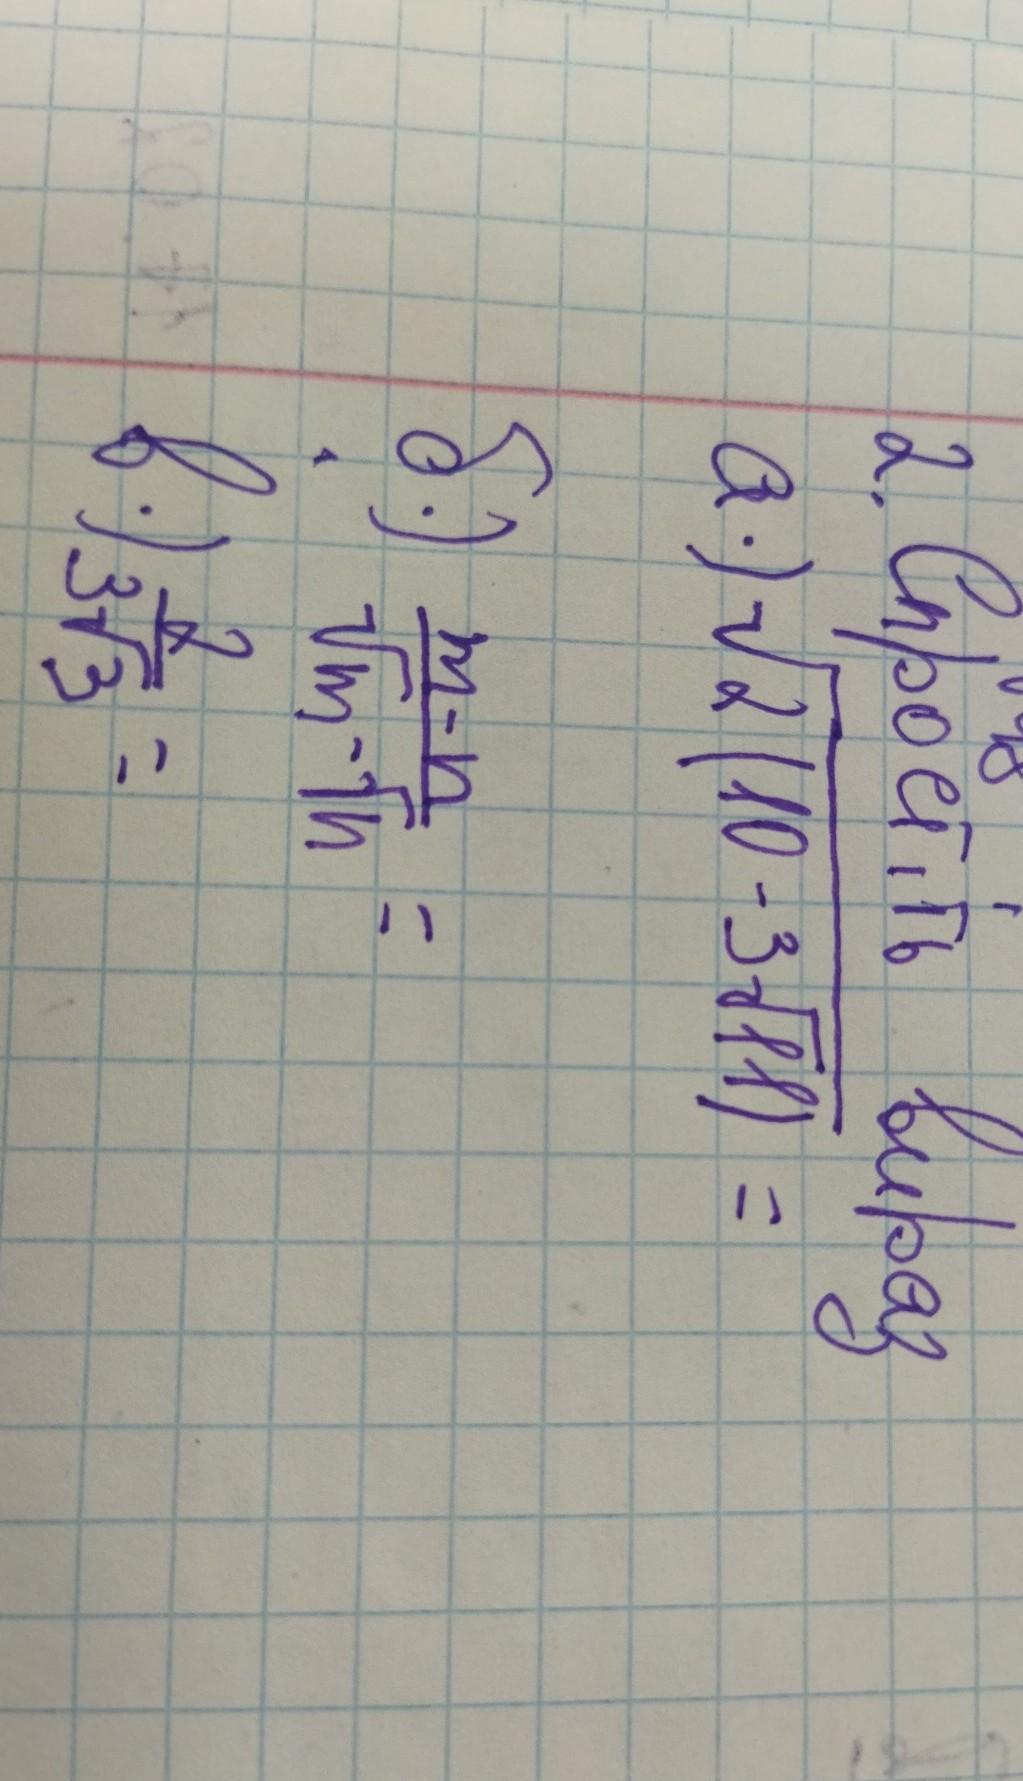 2. Спростіть вираз
а.) √2(10-3√11) =
б.) m-n / √m-√n =
в.) 2 / 3√3 =